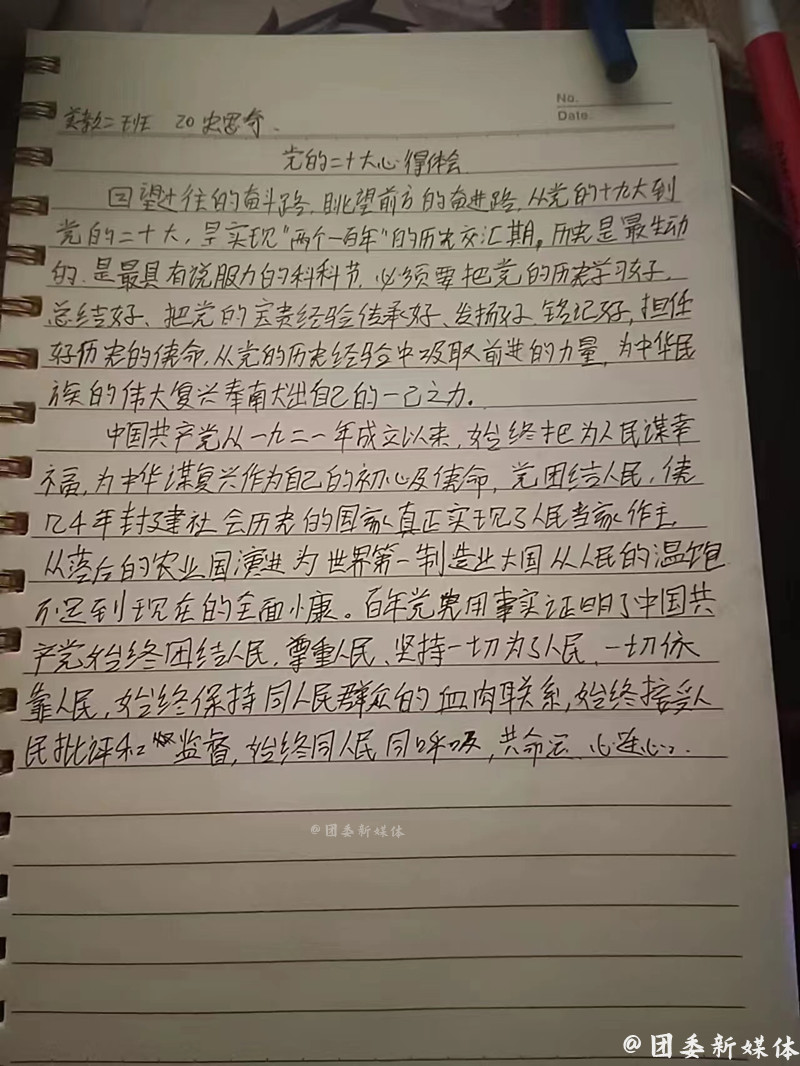 No.
Date.
英教二班 20 史思奇.
党的二十大心得体会
回望过往的奋斗路,眺望前方的奋进路,从党的十九大到
党的二十大,是实现“两个一百年”的历史交汇期。历史是最生动
的.是最具有说服力的科科书.必须要把党的历史学习好.
总结好、把党的宝贵经验传承好、发扬好、铭记好,担任
好历史的使命.从党的历史经验中吸取前进的力量,为中华民
族的伟大复兴奉献出自己的一己之力.
中国共产党从一九二一年成立以来,始终把为人民谋幸
福,为中华谋复兴作为自己的初心及使命,党团结人民,使
几千年封建社会历史的国家真正实现了人民当家作主
从落后的农业国演进为世界第一制造业大国从人民的温饱
不足到现在的全面小康。百年党史用事实证明了中国共
产党始终团结人民,尊重人民、坚持一切为了人民、一切依
靠人民,始终保持同人民群众的血肉联系,始终接受人
民批评和监督,始终同人民同呼吸,共命运、心连心.
@团委新媒体
@团委新媒体